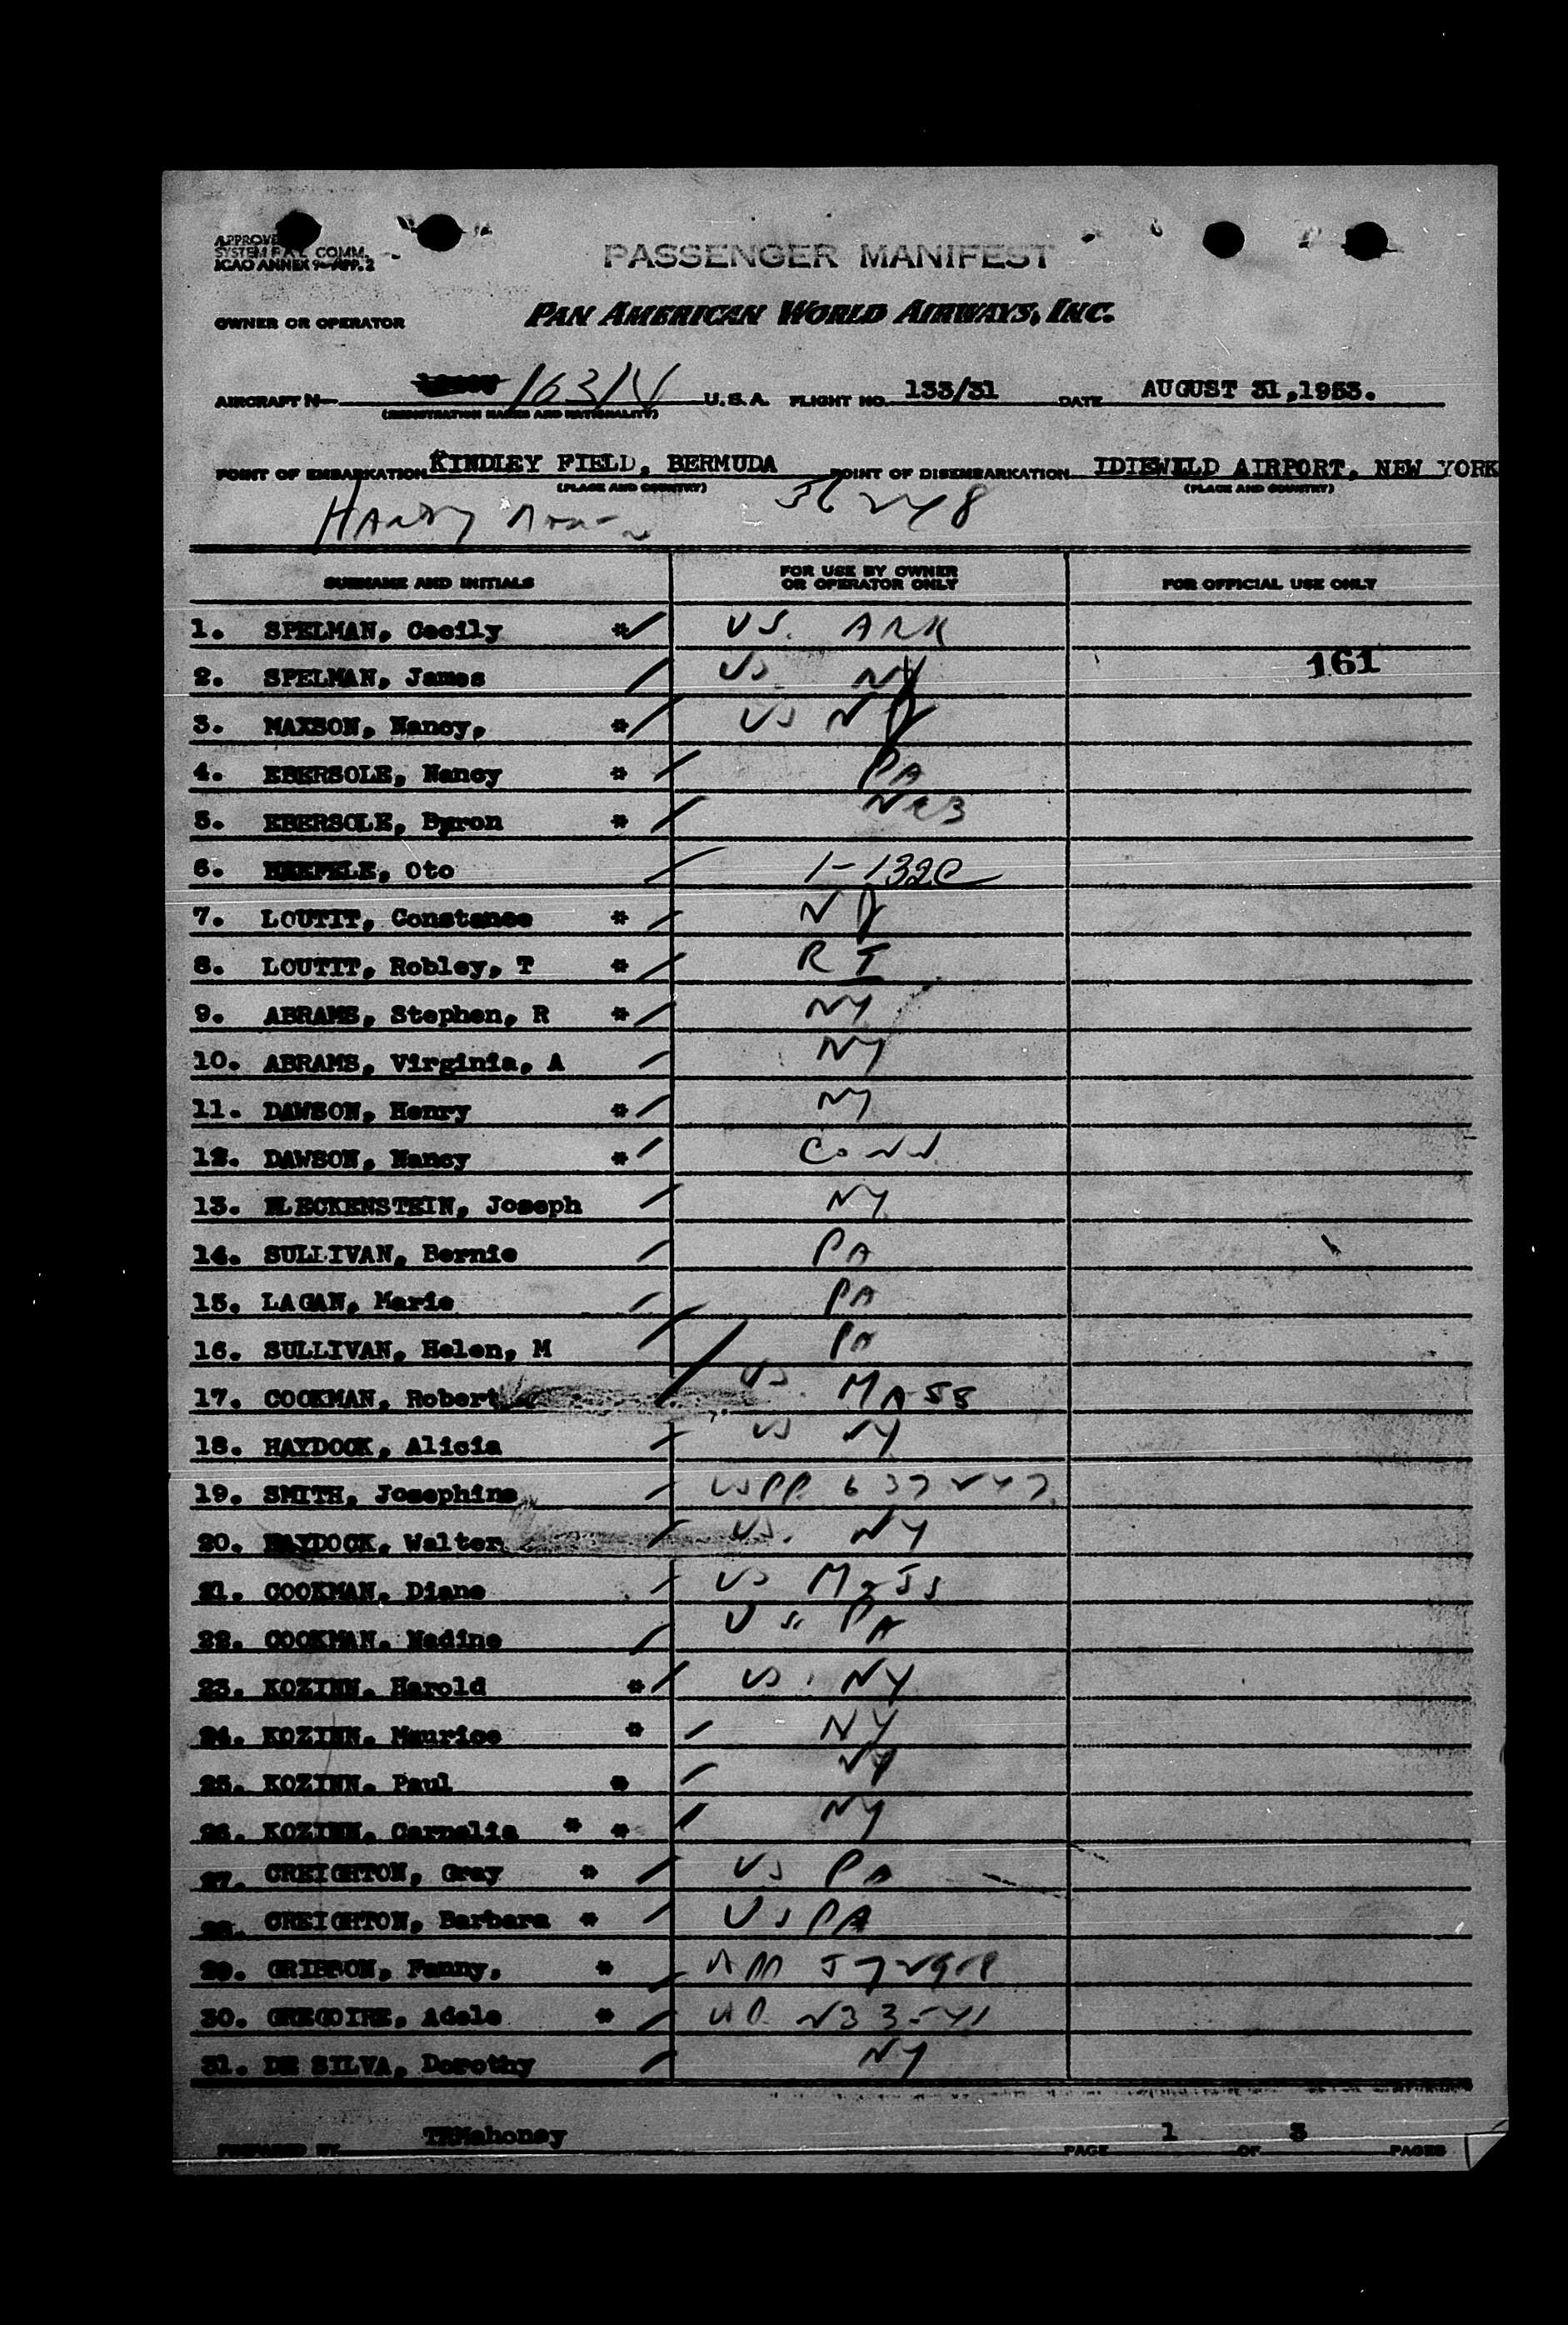 APPROVED
SYSTEM COMM.
ICAO ANNEX 9-APP.2
PASSENGER MANIFEST
OWNER OR OPERATOR PAN AMERICAN WORLD AIRWAYS, INC.
AIRCRAFT N- 1631V U.S.A. FLIGHT NO. 133/31 DATE AUGUST 31,1953.
(REGISTRATION MARKS AND NATIONALITY)
POINT OF EMBARKATION KINDLEY FIELD, BERMUDA POINT OF DISEMBARKATION IDIEWILD AIRPORT, NEW YORK
(PLACE AND COUNTRY) (PLACE AND COUNTRY)
SURNAME AND INITIALS FOR USE BY OWNER OR OPERATOR ONLY FOR OFFICIAL USE ONLY
1. SPELMAN, Cecily * US. ARK
161
2. SPELMAN, James US NY
3. MAXSON, Nancy, * US NY
4. EBERSOLE, Nancy * PA
5. EBERSOLE, Byron * NEB
6. Oto 1-132C
7. LOUTIT, Constance * NY
8. LOUTIT, Robley, T * RI
9. ABRAMS, Stephen, R * NY
10. ABRAMS, Virginia, A NY
11. DAWSON, Henry * NY
12. DAWSON, Nancy * CONN
13. FLECKENSTEIN, Joseph NY
14. SULLIVAN, Bernie PA
15. LAGAN, Marie PA
16. SULLIVAN, Helen, M PA
17. COOKMAN, Robert US. MASS
18. HAYDOCK, Alicia US NY
19. SMITH, Josephine USPP.
20. HAYDOCK, Walter US. NY
21. COOKMAN, Diane US MASS
22. COOKMAN, Nadine US PA
23. KOZINN, Harold * US. NY
24. KOZINN, Maurice * NY
25. KOZINN, Paul * NY
26. KOZINN, Carnelia * * NY
27. CREIGHTON, Gray * US PA
28. CREIGHTON, Barbara * US PA
29. GRIBBON, Fanny, *
30. GREGOIRE, Adele *
31. DE SILVA, Dorothy NY
PREPARED BY TRMahoney PAGE 1 OF 3 PAGES